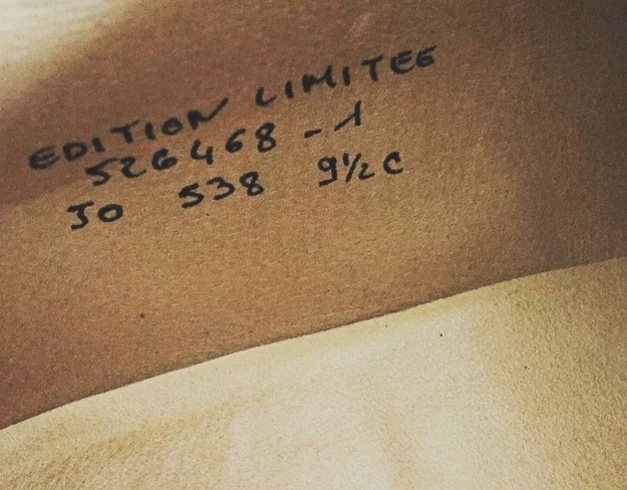 EDITION LIMITEE
526468-1
JO 538 9½ C